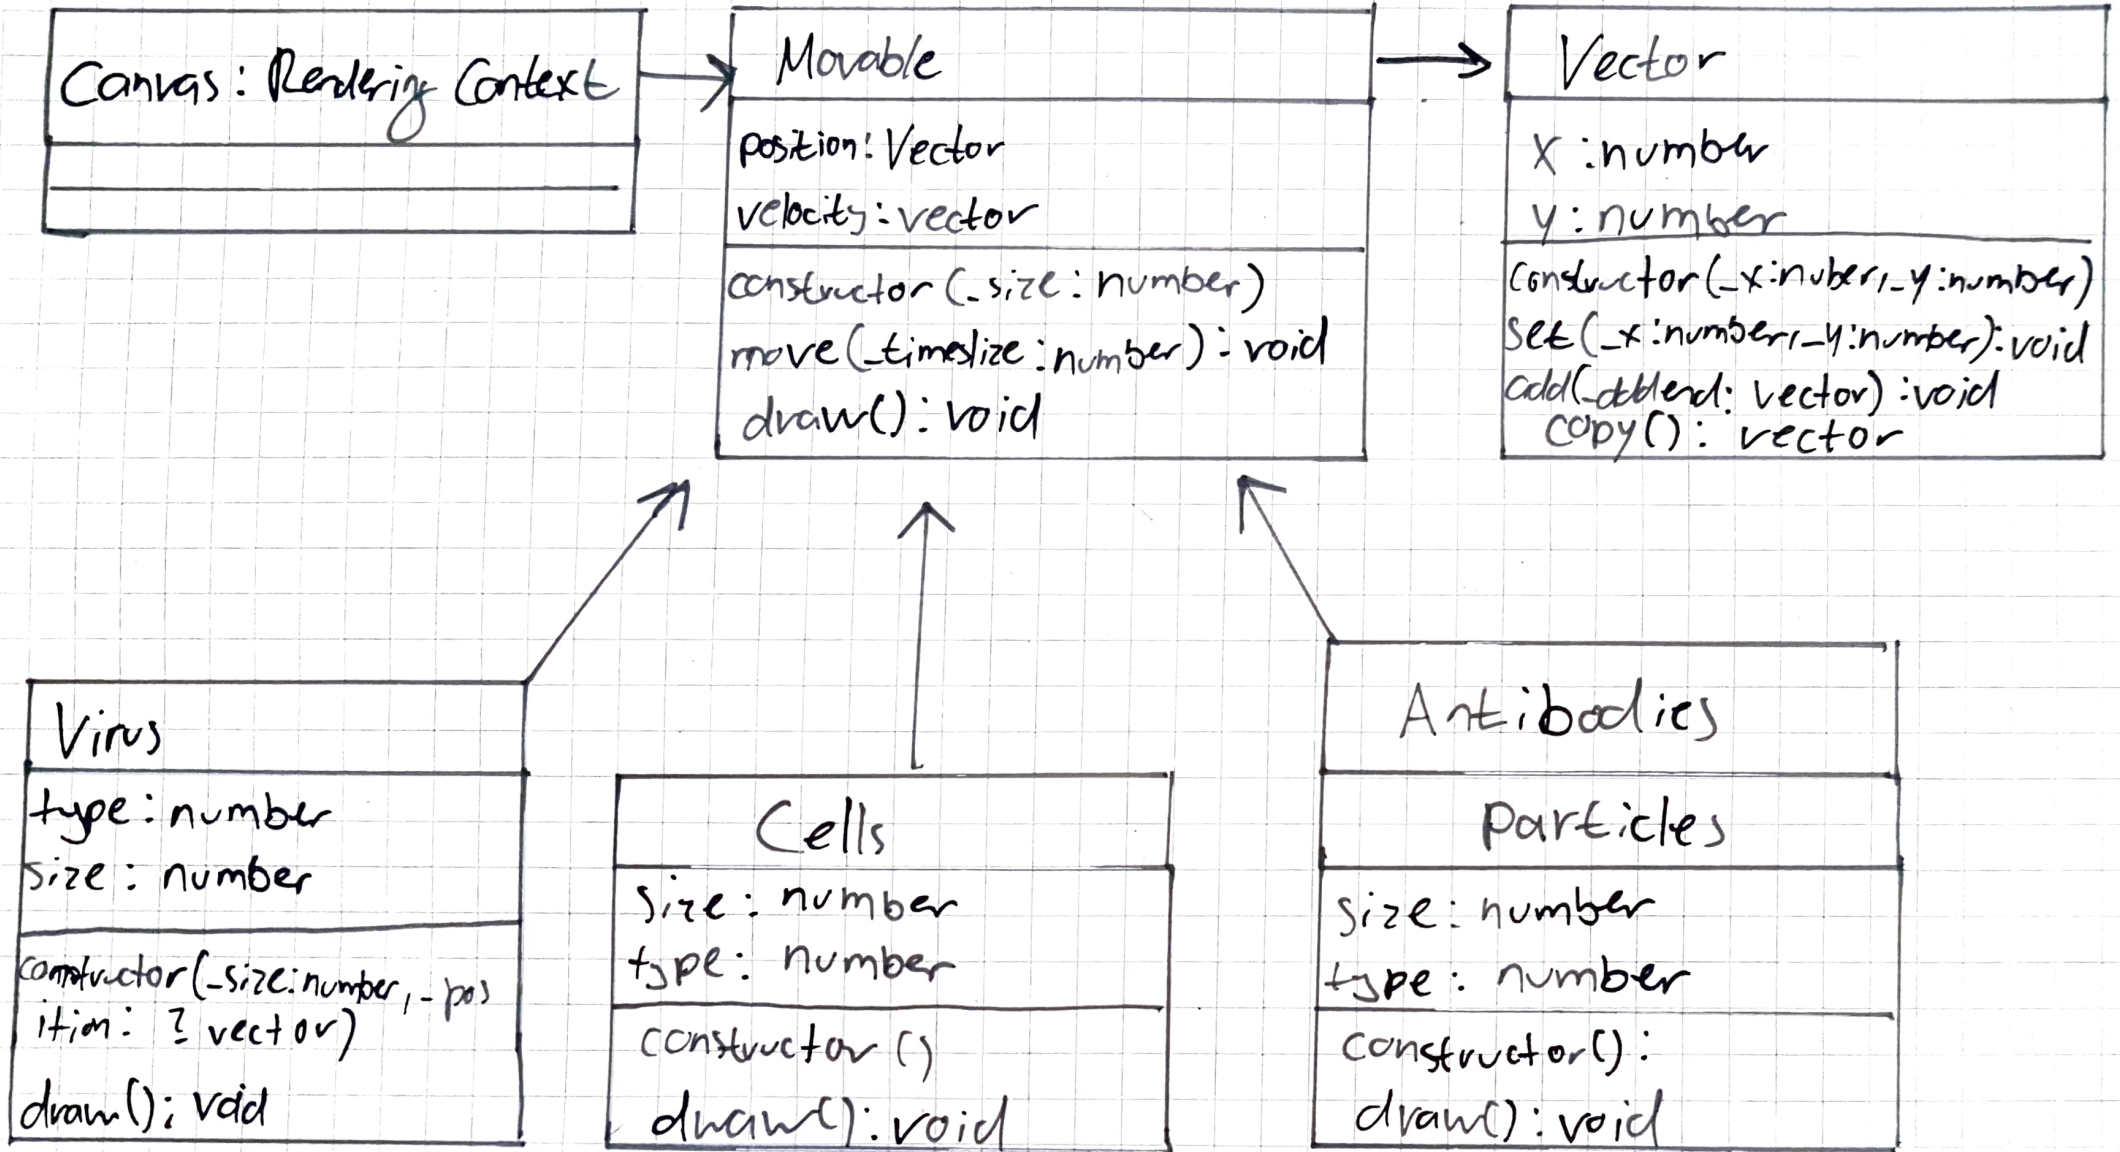 Canvas: Rendering Context
Movable
position: Vector
velocity: vector
constructor (_size: number)
move(_timeslize: number): void
draw(): void
Vector
x :number
y: number
constructor(_x:nuber, _y:number)
set(_x:number, _y:number): void
add(_addend: vector) :void
copy(): vector
Virus
type: number
size: number
constructor(_size:number, _pos
ition: ? vector)
draw(); void
Cells
size: number
type: number
constructor ()
draw(): void
Antibodies
particles
size: number
type: number
constructor():
draw(): void